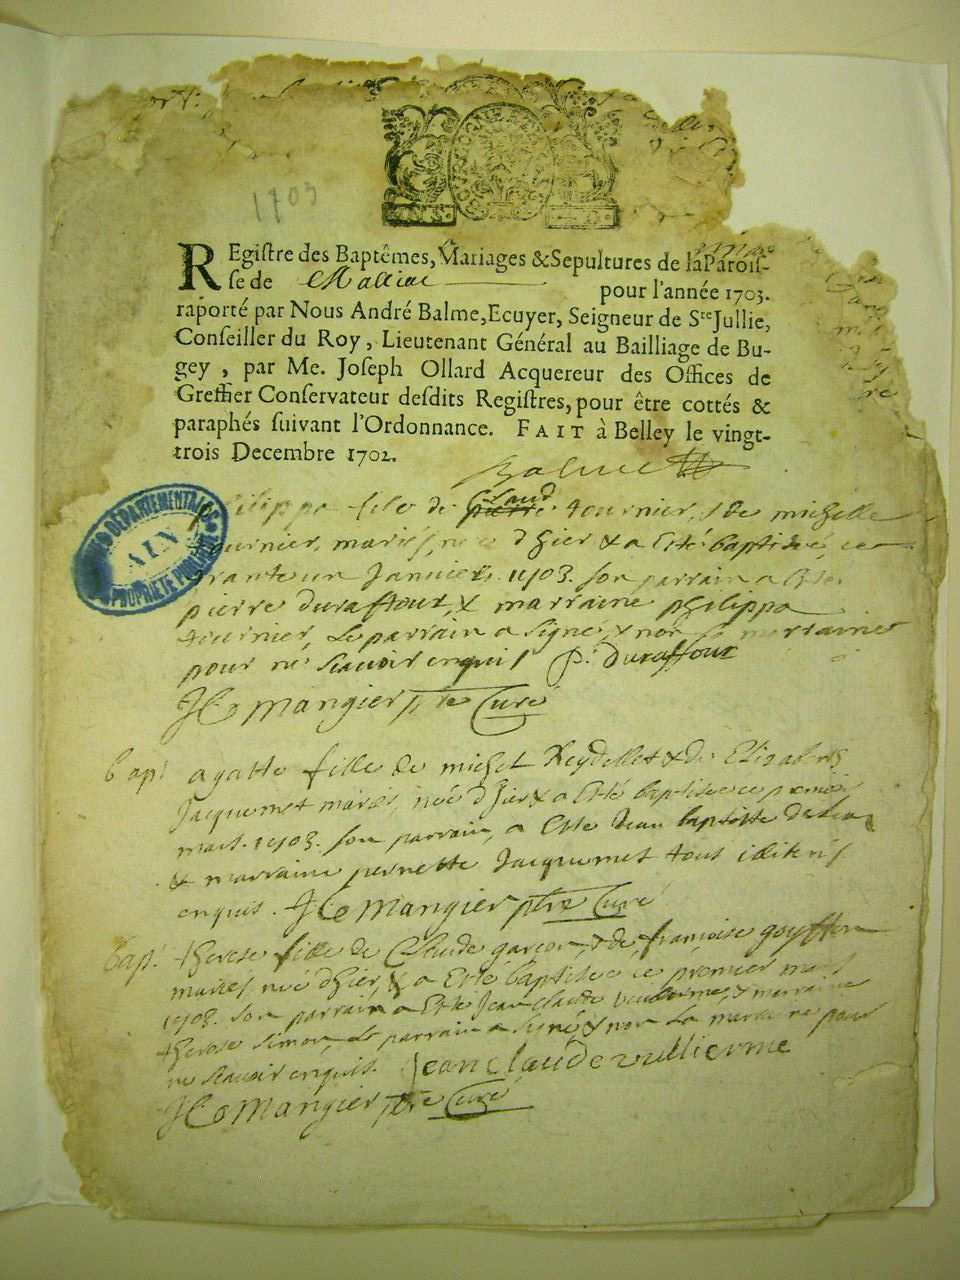 1703
REgistre des Baptêmes, Mariages & Sepultures de la Parois-
se de pour l'année 1703.
raporté par Nous André Balme, Ecuyer, Seigneur de Ste Jullie,
Conseiller du Roy, Lieutenant Général au Bailliage de Bu-
gey, par Me. Joseph Ollard Acquereur des Offices de
Greffier Conservateur desdits Registres, pour être cottés &
paraphés suivant l'Ordonnance. FAIT à Belley le vingt-
trois Decembre 1702.
Balme
ARCHIVES DÉPARTEMENTALES
AIN
PROPRIÉTÉ PUBLIQUE
philippa fille de pierre Claud tournier, & de michelle
tournier, mariés, née d'hier & a esté baptisée ce
trante un Janvier 1703. son parrain a esté
pierre duraffour, & marraine philippa
tournier, Le parrain a signé & non la marraine
pour ne scavoir enquis P. Duraffour
Mangier ptre Curé
bapt agatte fille de michel Reydellet & de Elizabeth
Jacquemet mariés, née d'hier & a esté baptisée ce premier
mars 1703. son parrain, a esté Jean baptiste
& marraine pernette Jacquemet tous illiterés
enquis. Mangier ptre Curé
bapt. therese fille de Claude garçon, & de françoise goyffon
mariés née d'hier, & a esté baptisée ce premier mars
1703. son parrain a esté Jean Claude vulierme, & marraine
therese simon, Le parrain a signé & non la marraine pour
ne scavoir enquis. Jean Claude vullierme
Mangier ptre Curé